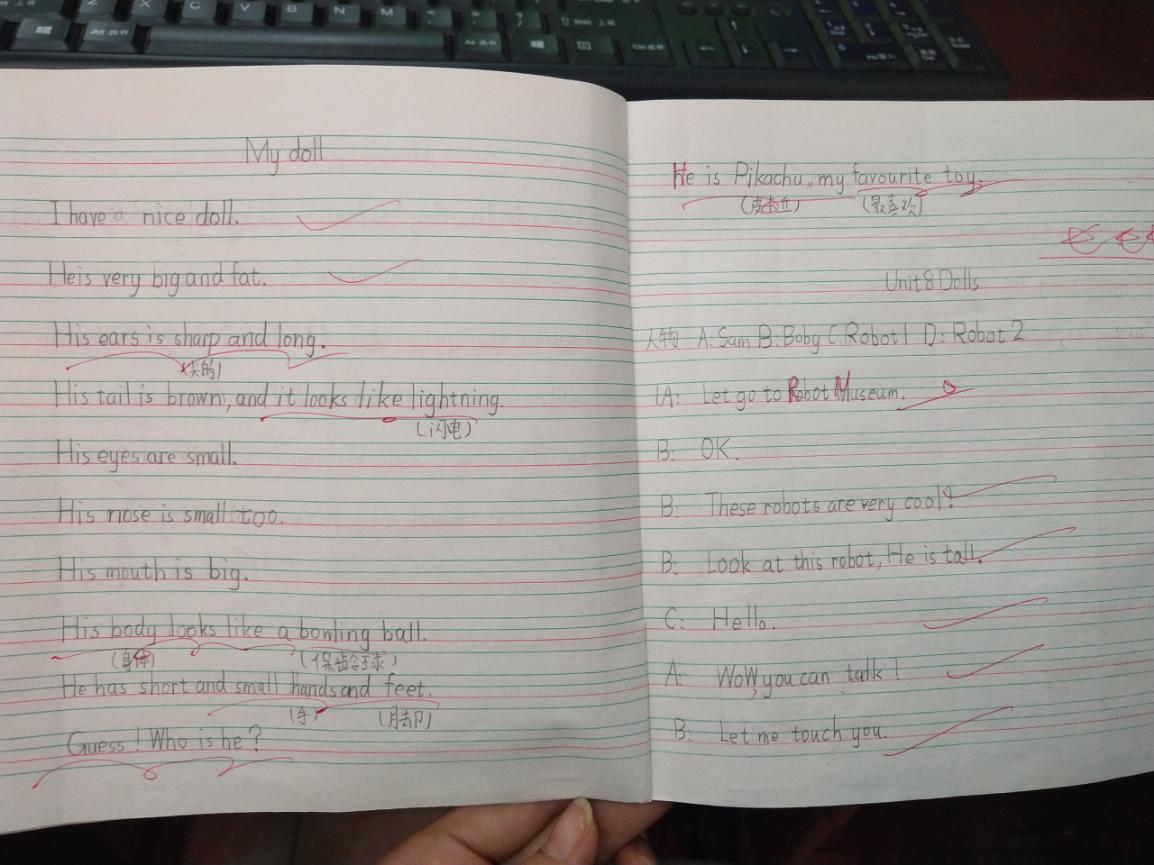 My doll
I have a nice doll.
He is very big and fat.
His ears is sharp and long.
(尖的)
His tail is brown, and it looks like lightning.
(闪电)
His eyes are small.
His nose is small too.
His mouth is big.
His body looks like a bowling ball.
(身体) (保龄球)
He has short and small hands and feet.
(手) (脚)
Guess! Who is he?
He is Pikachu, my favourite toy.
(皮卡丘) (最喜欢)
Unit 8 Dolls
人物 A: Sam B: Boby C: Robot 1 D: Robot 2
1A: Let go to Robot Museum.
B: OK.
B: These robots are very cool!
B: Look at this robot, He is tall.
C: Hello.
A: Wow, you can talk!
B: Let me touch you.